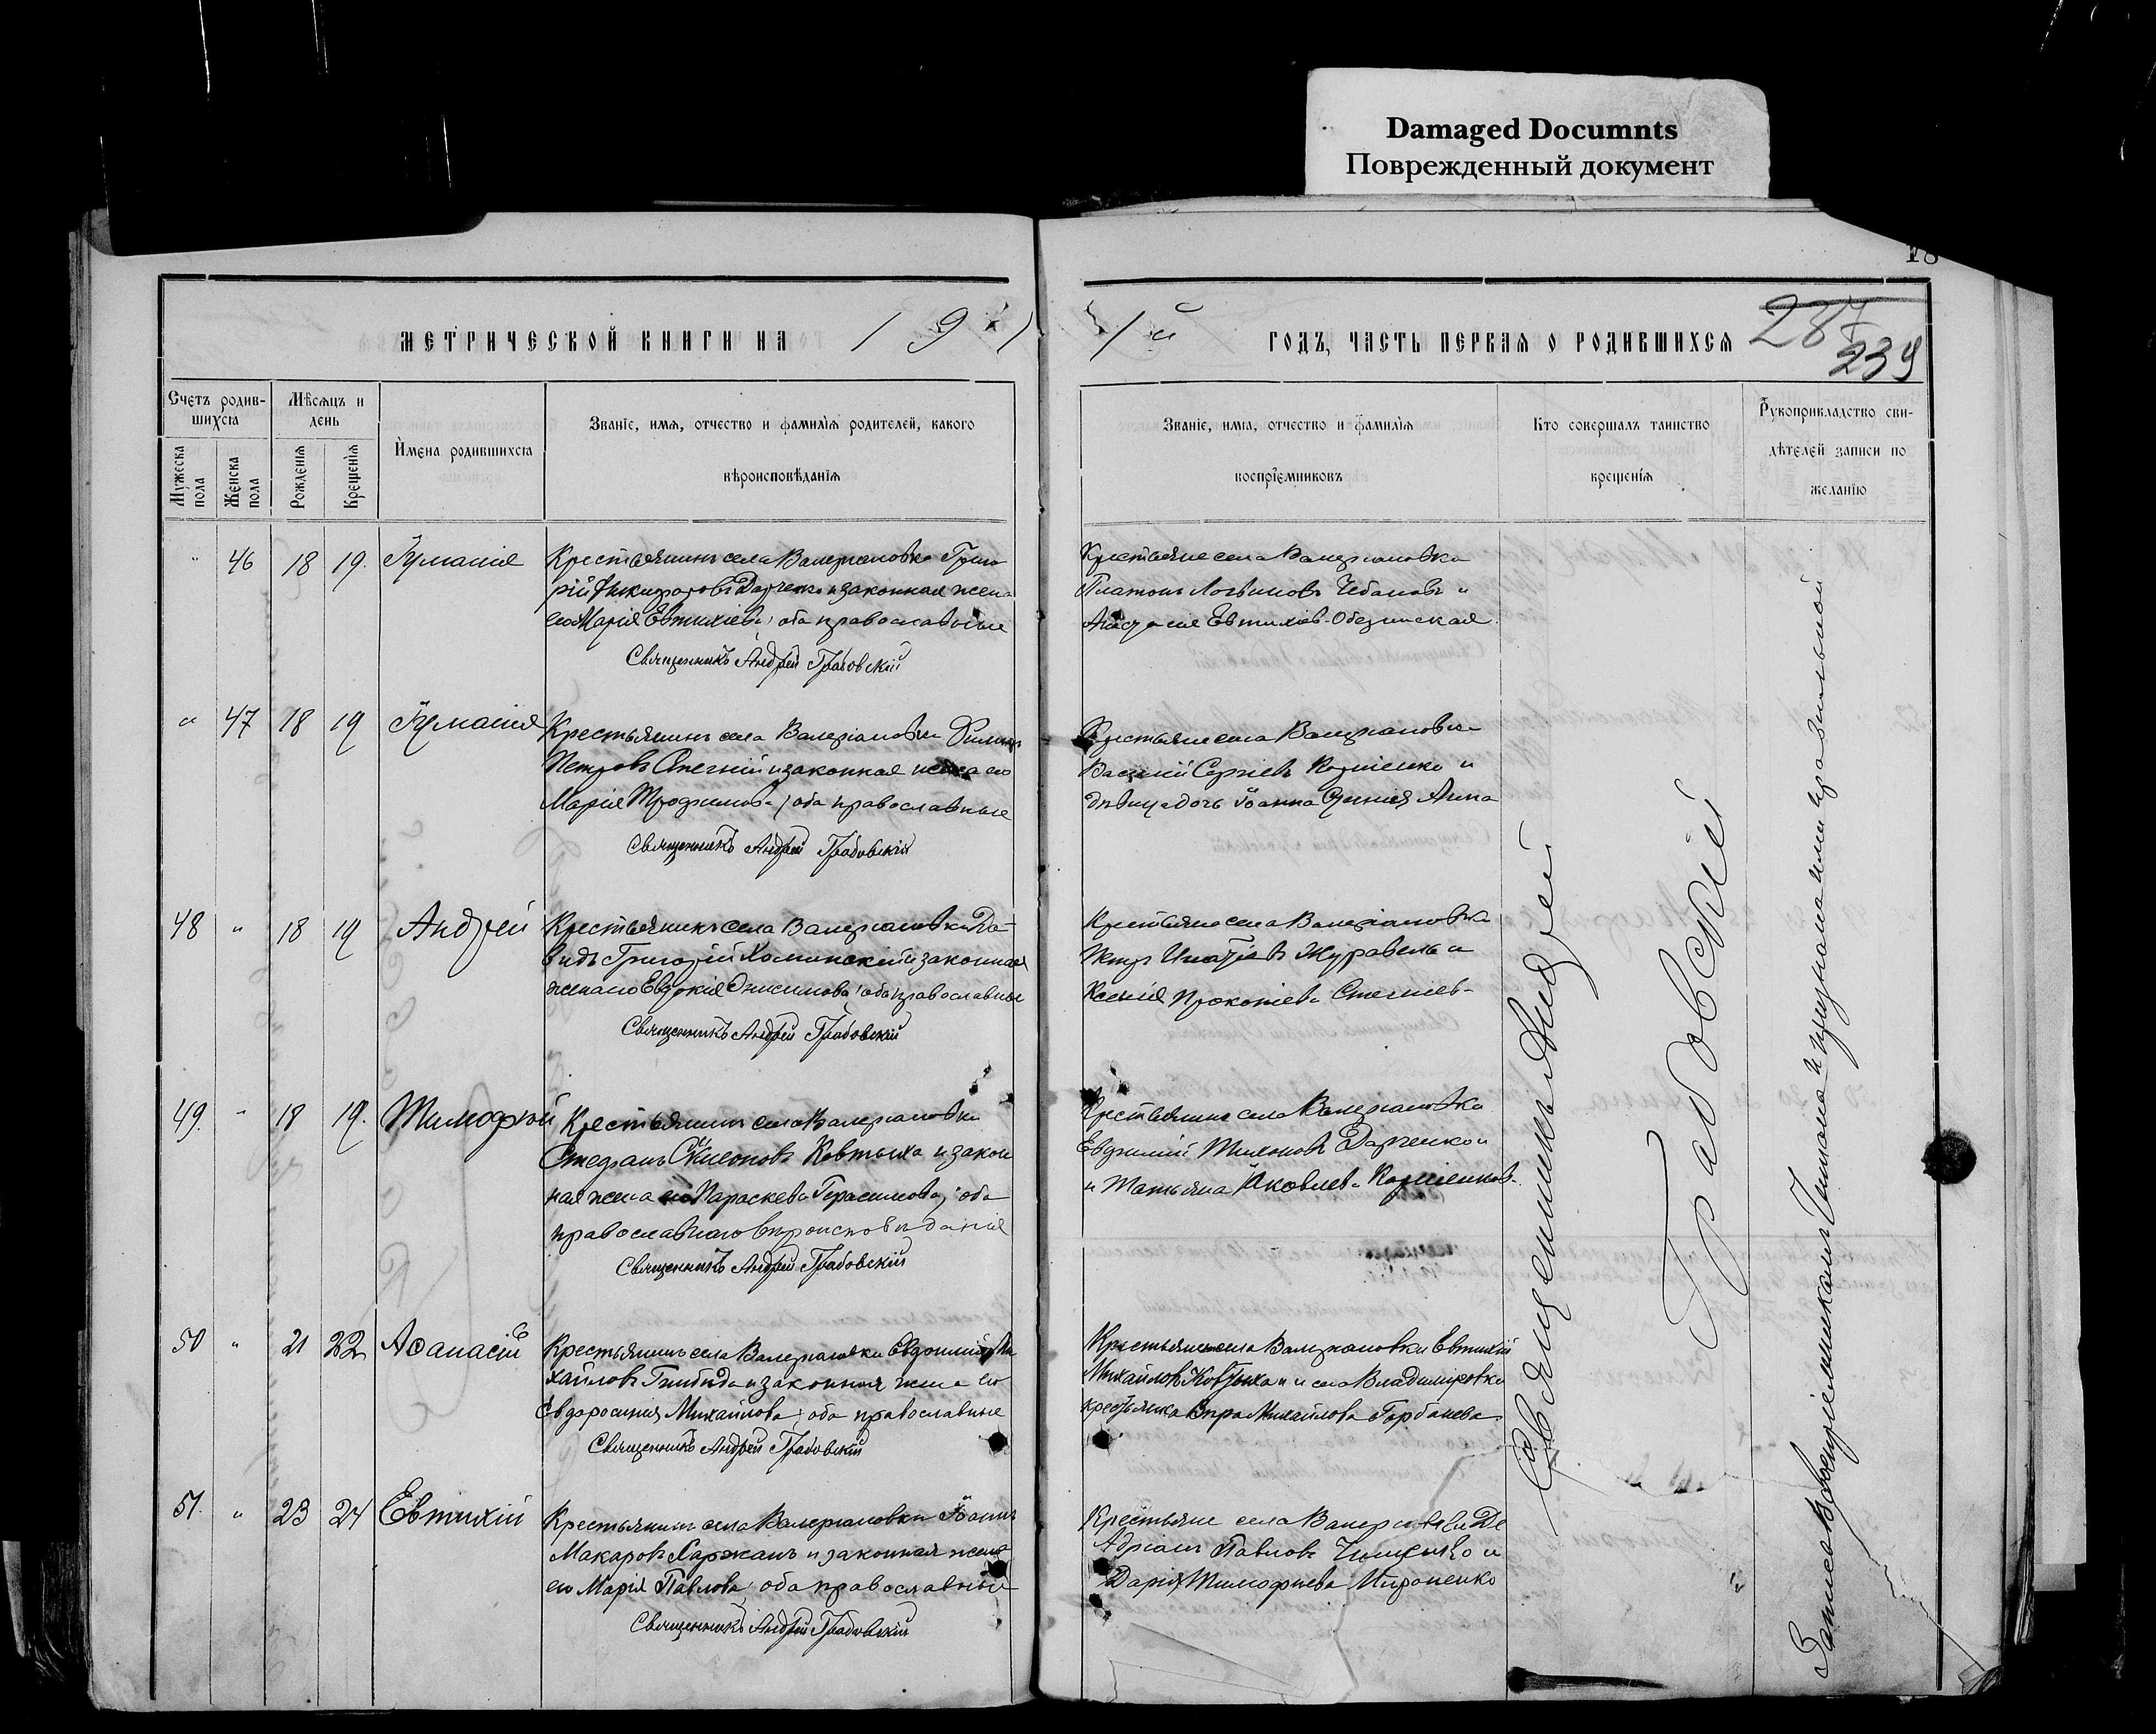 Damaged Documnts
Поврежденный документ
18
МЕТРИЧЕСКОЙ КНИГИ НА 191
1й ГОДЪ, ЧАСТЬ ПЕРВАЯ О РОДИВШИХСЯ
287
239
Счетъ родив-
шихся
Мужеска пола
Женска пола
Мѣсяцъ и
день
Рожденія
Крещенія
Имена родившихся
Званіе, имя, отчество и фамилія родителей, какого
вѣроисповѣданія
Званіе, имя, отчество и фамилія
воспріемниковъ
Кто совершалъ таинство
крещенія
Рукоприкладство сви-
дѣтелей записи по
желанію
" 46 18 19.
Крестьянинъ села Валеріановки Григо
рій Никифоровъ и законная жена
его Марія Евтихіева, оба православные
Священникъ Андрей Грабовскій
Крестьяне села Валеріановки
Платонъ Логвиновъ Чебановъ и
Евтихіев
" 47 18 19
Крестьянинъ села Валеріановки
Петровъ и законная жена его
Марія Трофимова, оба православные
Священникъ Андрей Грабовскій
Крестьяне села Валеріановки
Василій Сергіевъ и
дѣвица дочь Іоанна Анна
48 " 18 19 Андрей
Крестьянинъ села Валеріановки Да-
видъ Григорій и законная
жена его Евдокія Онисимова, оба православные
Священникъ Андрей Грабовскій
Крестьяне села Валеріановки
Петръ Игнатіевъ Журавель и
Ксенія Прокопіева
49. " 18 19. Тимофѣй
Крестьянинъ села Валеріановки
Стефанъ Ковтыха и закон
ная жена его Параскева Герасимова, оба
православнаго вѣроисповѣданія
Священникъ Андрей Грабовскій
Крестьяне села Валеріановки
Евфимій Тихоновъ и
и Татьяна Яковлева
50 " 21 22 Аѳанасій
Крестьянинъ села Валеріановки Евфимій Ми
хайловъ и законная жена его
Евфросинія Михайлова, оба православные
Священникъ Андрей Грабовскій
Крестьяне села Валеріановки Евтихій
Михайловъ Ковтыха и села Владиміровки
крестьянка Вѣра Михайлова Горбанева
51. " 23 24 Евтихій
Крестьянинъ села Валеріановки Іоаннъ
Макаровъ Каржанъ и законная жена
его Марія Павлова, оба православные
Священникъ Андрей Грабовскій
Крестьяне села Валеріановки
Адріанъ Павловъ и
Дарія Тимофѣева Мироненко
Священникъ Андрей
Грабовскій